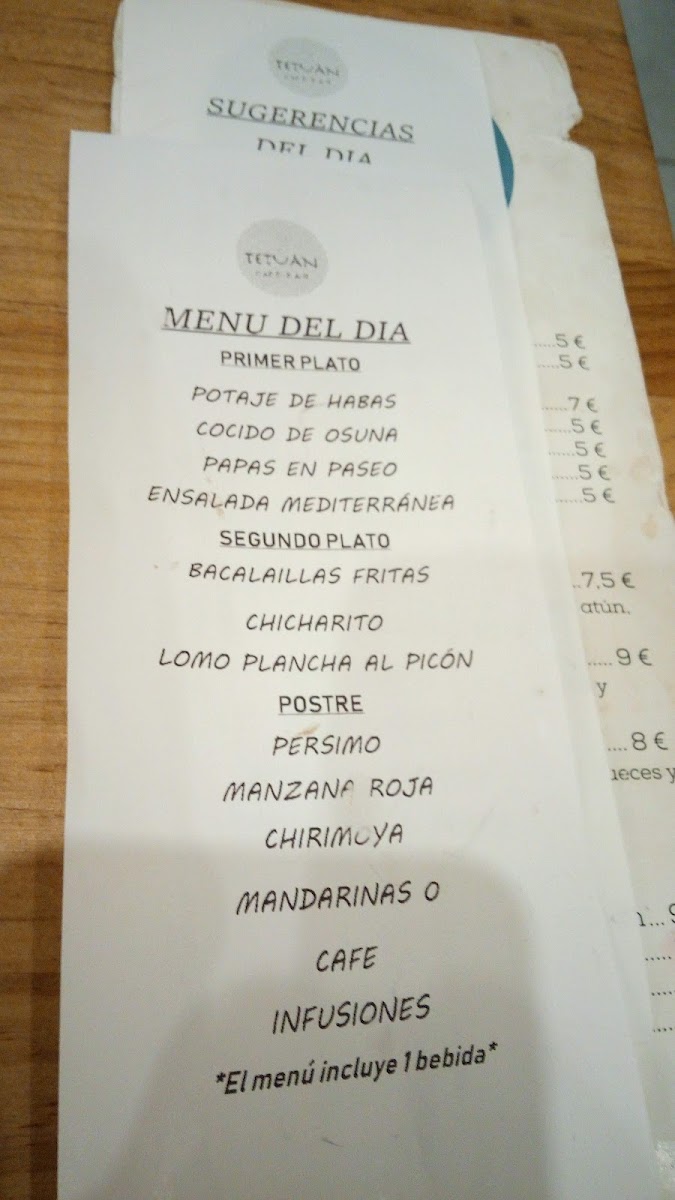 TETUAN
SUGERENCIAS
DEL DIA
TETUAN
CAFE BAR
MENU DEL DIA
PRIMER PLATO
POTAJE DE HABAS
COCIDO DE OSUNA
PAPAS EN PASEO
ENSALADA MEDITERRÁNEA
SEGUNDO PLATO
BACALAILLAS FRITAS
CHICHARITO
LOMO PLANCHA AL PICÓN
POSTRE
PERSIMO
MANZANA ROJA
CHIRIMOYA
MANDARINAS O
CAFE
INFUSIONES
*El menú incluye 1 bebida*
.....5 €
.....5 €
......7 €
......5 €
......5 €
.....5 €
.....5 €
..7,5 €
atún.
.....9 €
y
....8 €
y